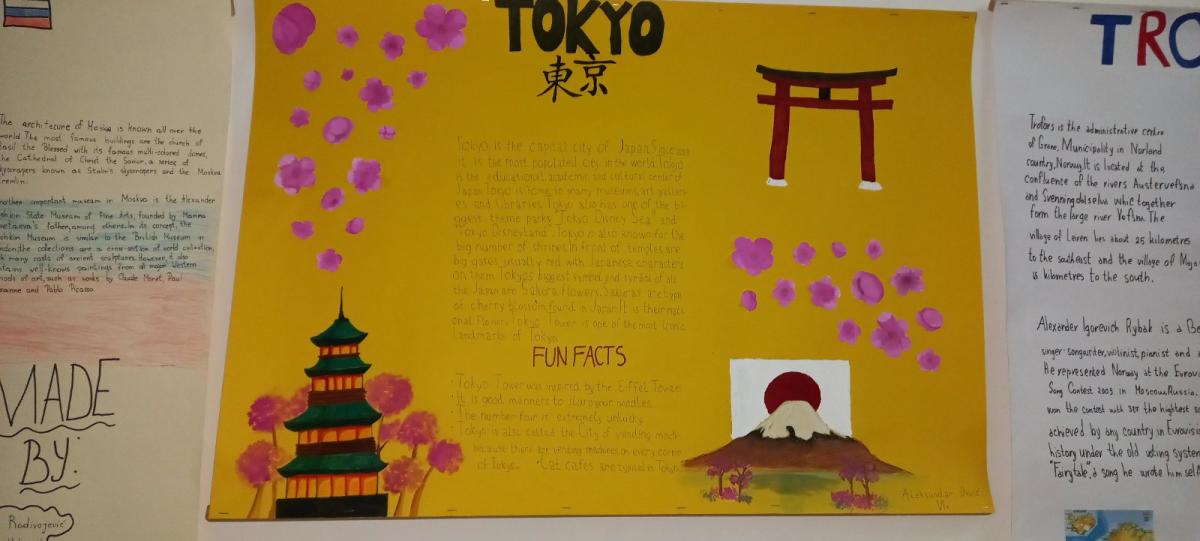 The architecure of Moska is known all over the
world The most famous buildings are the church of
Basil the Blessed with its famous multi-colored domes,
the Cathedral of Christ the Savior, a series of
skyscrapers known as Stalin's skyscrapers and the Moskva
Kremlin.
Another important museum in Moskva is the Alexander
Pushkin State Museum of Fine Arts, founded by Marina
Tsvetaeva's father, among others. In its concept, the
Pushkin Museum is similar to the British Museum in
London, the collections are a cross-section of world civilization,
with many casts of ancient sculptures. However, it also
contains well-knows paintings from all major Western
schools of art, such as works by Claude Monet, Paul
Cezanne and Pablo Picasso.
MADE
BY:
Radivojević
TOKYO
東京
Tokyo is the capital city of Japan. Since 2010
it is the most populated city in the world. Tokyo
is the educational, academic and cultural center of
Japan. Tokyo is home to many museums, art galleri-
es and libraries. Tokyo also has one of the bi-
ggest theme parks "Tokyo Disney Sea" and
"Tokyo Disneyland". Tokyo is also known for the
big number of shrines. In front of temples are
big gates, usually red with Japanese characters
on them. Tokyo's biggest symbol and symbol of all
the Japan are Sakura flowers. Sakuras are type
of cherry blossom found in Japan. It is their nati-
onal flower. Tokyo Tower is one of the most iconic
landmarks of Tokyo.
FUN FACTS
· Tokyo Tower was inspired by the Eiffel Tower.
· It is good manners to slurp your noodles.
· The number four is extremely unlucky.
· Tokyo is also called the City of vending machi-
because there are vending machines on every corner
of Tokyo. · Cat cafes are typical in Tokyo.
Aleksandar
VI₁
TRO
Trofors is the administrative centre
of Grane, Municipality in Norland
country, Norway. It is located at the
confluence of the rivers Austervefsna
and Svenningdalselva whic together
form the large river Vefsna. The
village of Leiren lies about 25 kilometres
to the southeast and the village of Maja
is kilometres to the south.
Alexander Igorevich Rybak is a Be
singer-songwriter, violinist, pianist and
He represented Norway at the Eurovi
Song Contest 2009 in Moscow, Russia.
won the contest with 387 the highest
achieved by any country in Eurovisi
history under the old voting system
"Fairytale", a song he wrote him self